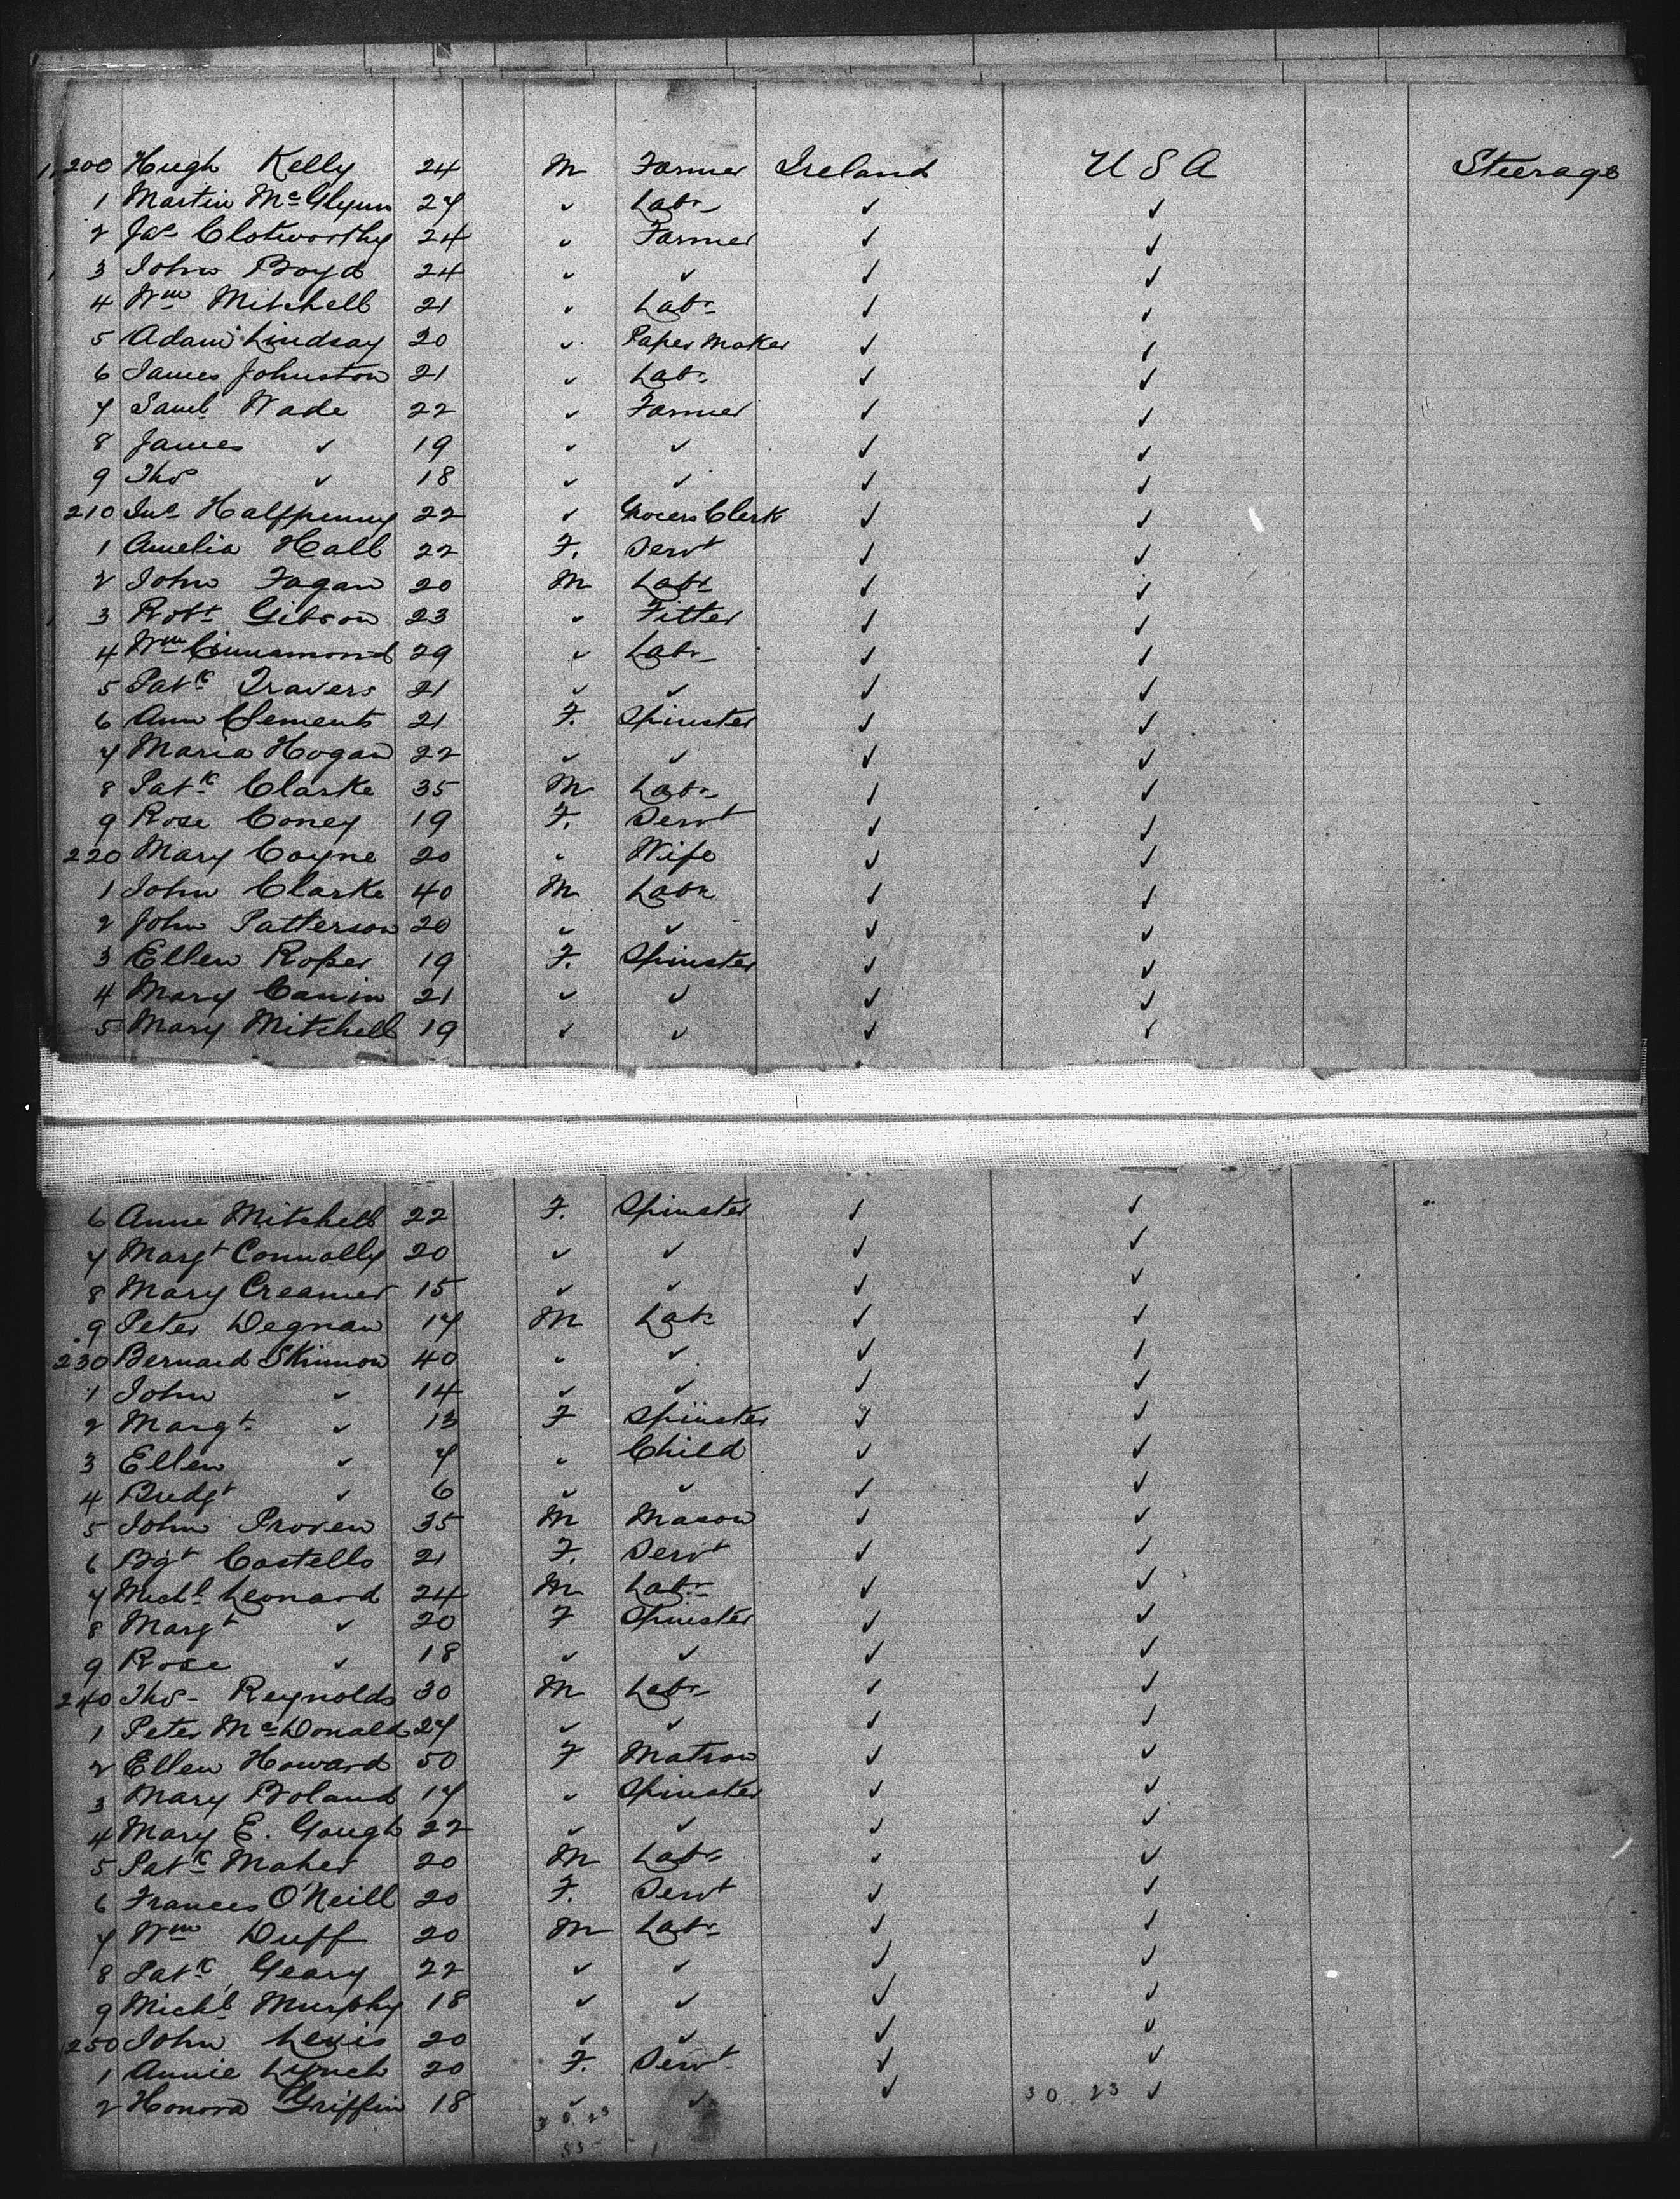 200 Hugh Kelly 24 M Farmer Ireland U S A Steerage
1 Martin McGlynn 27 ✓ Labr ✓ ✓
2 Jas Clotworthy 24 ✓ Farmer ✓ ✓
3 John Boyd 24 ✓ ✓ ✓ ✓
4 Wm Mitchell 21 ✓ Labr ✓ ✓
5 Adam Lindsay 20 ✓ Paper Maker ✓ ✓
6 James Johnston 21 ✓ Labr ✓ ✓
7 Saml Wade 22 ✓ Farmer ✓ ✓
8 James ✓ 19 ✓ ✓ ✓ ✓
9 Thos ✓ 18 ✓ ✓ ✓ ✓
210 Jno Halfpenny 22 ✓ Grocers Clerk ✓ ✓
1 Amelia Hall 22 F. Servt ✓ ✓
2 John Fagan 20 M Labr ✓ ✓
3 Robt Gibson 23 ✓ Fitter ✓ ✓
4 Wm Cinnamond 29 ✓ Labr ✓ ✓
5 Patk Travers 21 ✓ ✓ ✓ ✓
6 Ann Clements 21 F. Spinster ✓ ✓
7 Maria Hogan 22 ✓ ✓ ✓ ✓
8 Patk Clarke 35 M Labr ✓ ✓
9 Rose Coney 19 F. Servt ✓ ✓
220 Mary Coyne 20 ✓ Wife ✓ ✓
1 John Clarke 40 M Labr ✓ ✓
2 John Patterson 20 ✓ ✓ ✓ ✓
3 Ellen Roper 19 F. Spinster ✓ ✓
4 Mary 21 ✓ ✓ ✓ ✓
5 Mary Mitchell 19 ✓ ✓ ✓ ✓
6 Anne Mitchell 22 F. Spinster ✓ ✓
7 Margt Connolly 20 ✓ ✓ ✓ ✓
8 Mary Creamer 15 ✓ ✓ ✓ ✓
9 Peter Degnan 17 M Labr ✓ ✓
230 Bernard Skinnon 40 ✓ ✓ ✓ ✓
1 John ✓ 14 ✓ ✓ ✓ ✓
2 Margt ✓ 13 F Spinster ✓ ✓
3 Ellen ✓ 7 ✓ Child ✓ ✓
4 Bridgt ✓ 6 ✓ ✓ ✓ ✓
5 John Proven 35 M Mason ✓ ✓
6 Bgt Costello 21 F. Servt ✓ ✓
7 Michl Leonard 24 M Labr ✓ ✓
8 Margt ✓ 20 F Spinster ✓ ✓
9 Rose ✓ 18 ✓ ✓ ✓ ✓
240 Thos Reynolds 30 M Labr ✓ ✓
1 Peter McDonald 27 ✓ ✓ ✓ ✓
2 Ellen Howard 50 F Matron ✓ ✓
3 Mary Boland 17 ✓ Spinster ✓ ✓
4 Mary E. Gough 22 ✓ ✓ ✓ ✓
5 Patk Maher 20 M Labr ✓ ✓
6 Frances O'Neill 20 F. Servt ✓ ✓
7 Wm Duff 20 M Labr ✓ ✓
8 Patk Geary 22 ✓ ✓ ✓ ✓
9 Michl Murphy 18 ✓ ✓ ✓ ✓
250 John Lewis 20 ✓ ✓ ✓ ✓
1 Annie Lynch 20 F. Servt ✓ ✓
2 Honora Griffin 18 ✓ ✓ ✓ 30 23 ✓